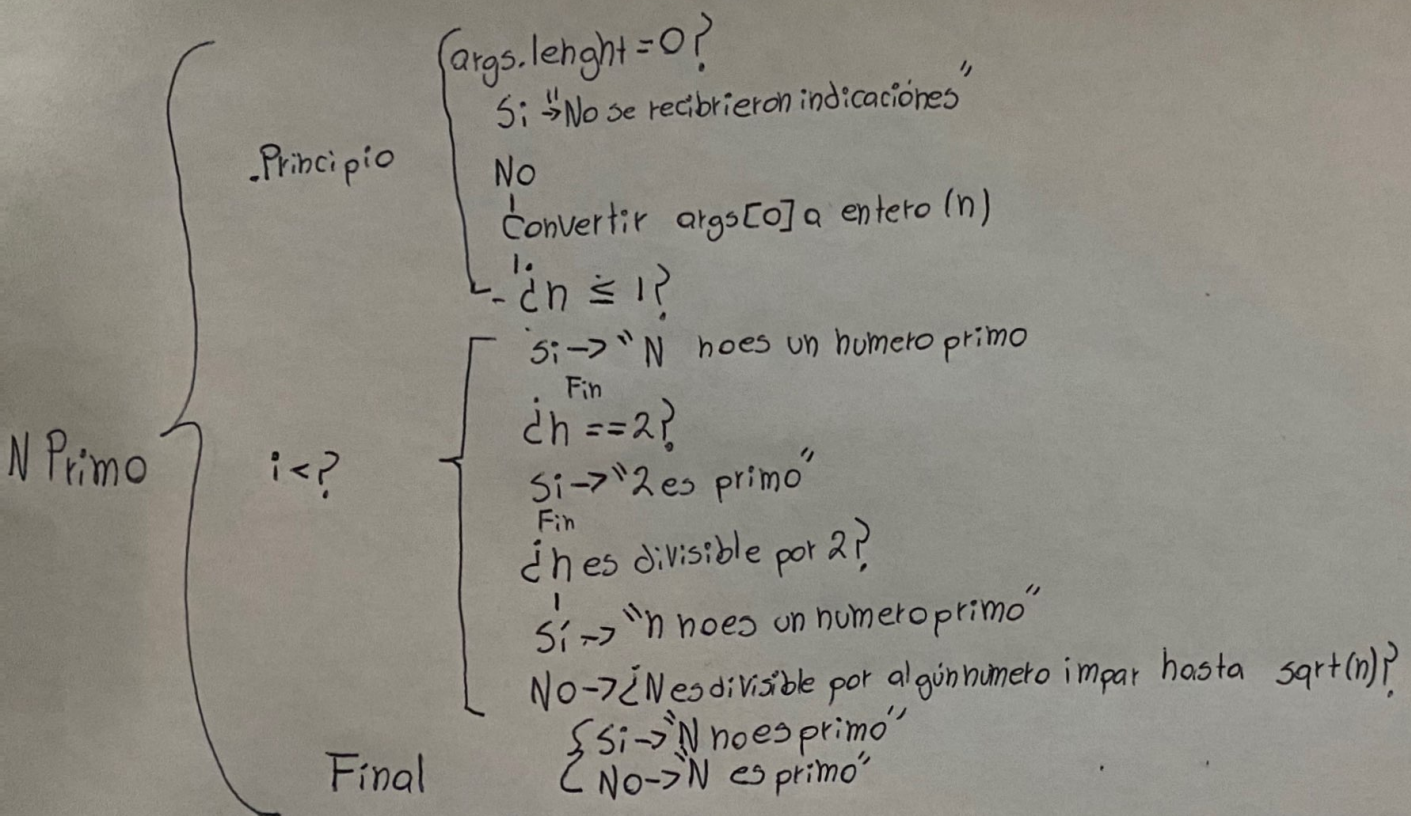 args.lenght=0?
Si →"No se recibrieron indicaciónes"
.Principio
NO
Convertir args[0] a entero (n)
¿n ≤ 1?
si->"N no es un numero primo
Fin
¿n ==2?
N Primo
i<?
si->"2 es primo"
Fin
¿n es divisible por 2?
Sí->"n no es un numero primo"
No->¿N es divisible por algún numero impar hasta sqrt(n)?
Si->"N no es primo"
Final
No->"N es primo"